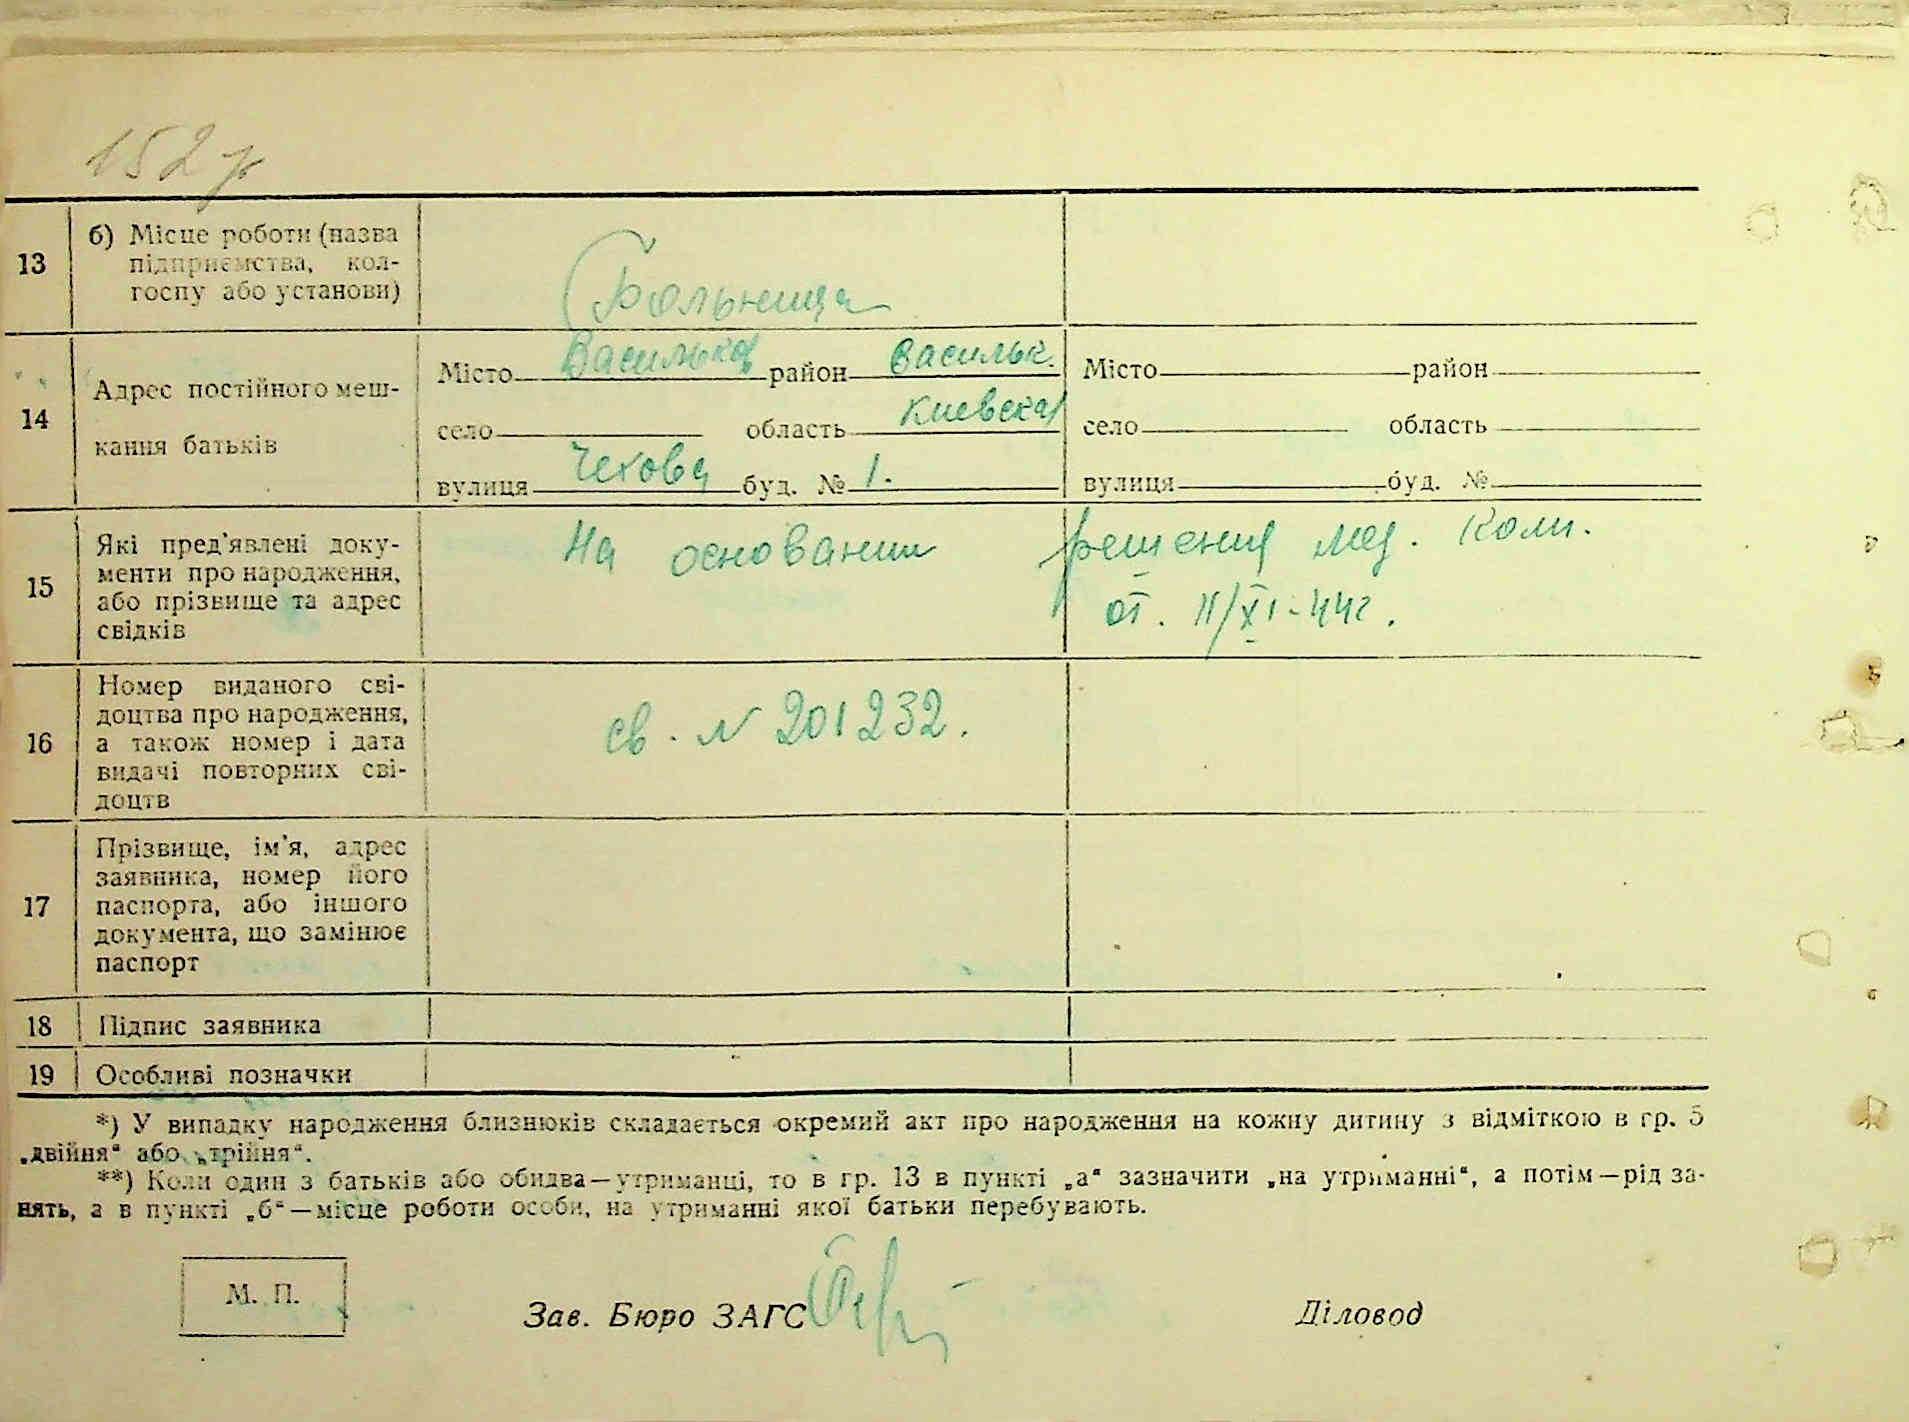 152
13 б) Місце роботи (назва
підприємства, кол-
госпу або установи)
Больница
14 Адрес постійного меш-
кання батьків
Місто Васильков район Васильк.
село область Киевская
вулиця Чехова буд. № 1.
Місто район
село область
вулиця буд. №
15 Які пред'явлені доку-
менти про народження,
або прізвище та адрес
свідків
На основании решения мед. Ком.
от. 11/XI-44г.
16 Номер виданого сві-
доцтва про народження,
а також номер і дата
видачі повторних сві-
доцтв
св. N 201232.
17 Прізвище, ім'я, адрес
заявника, номер його
паспорта, або іншого
документа, що замінює
паспорт
18 Підпис заявника
19 Особливі позначки
*) У випадку народження близнюків складається окремий акт про народження на кожну дитину з відміткою в гр. 5
„двійня“ або „трійня“.
**) Коли один з батьків або обидва—утриманці, то в гр. 13 в пункті „а“ зазначити „на утриманні“, а потім—рід за-
нять, а в пункті „б“—місце роботи особи, на утриманні якої батьки перебувають.
М. П.
Зав. Бюро ЗАГС
Діловод